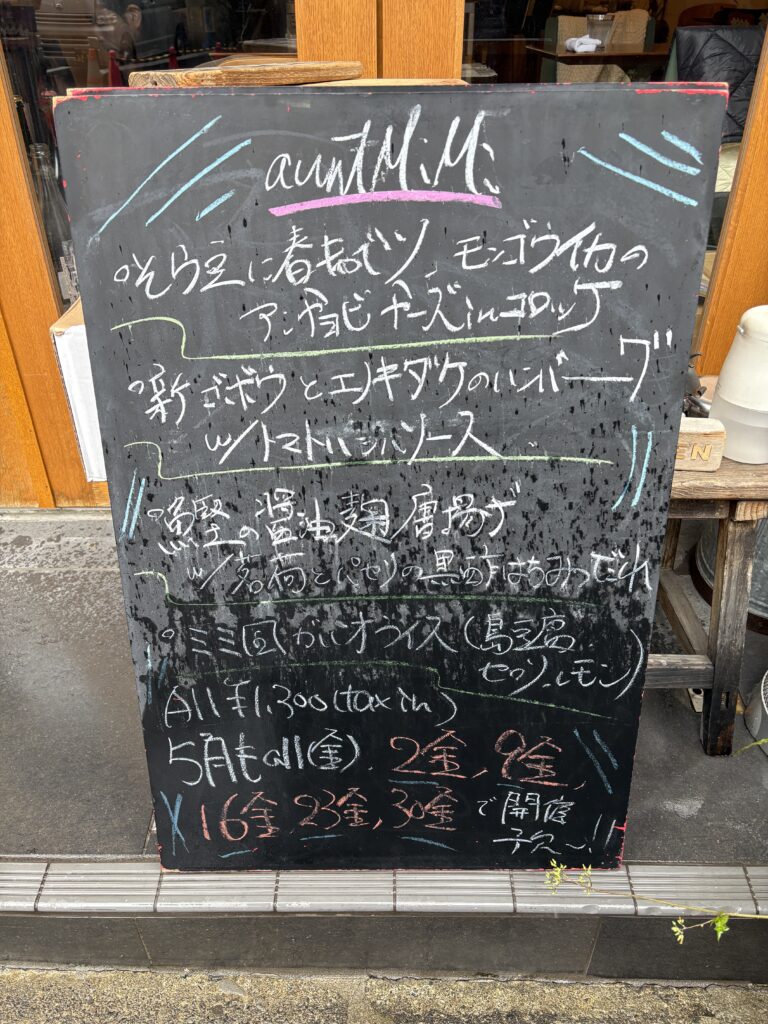 auntMiMi
°そら豆に春キャベツ、モンゴウイカの
アンチョビチーズinコロッケ
°新ゴボウとエノキダケのハンバーグ
w/トマトハニバソース
°鰹の醤油麹唐揚げ
w/茗荷とパセリの黒酢はちみつだれ
°ミミ風オムライス(島豆腐
セロリ、レモン)
All ¥1.300(tax in)
5月もall(金)、2金、9金、
16金 23金、30金 で開催
予定〜!!
EN